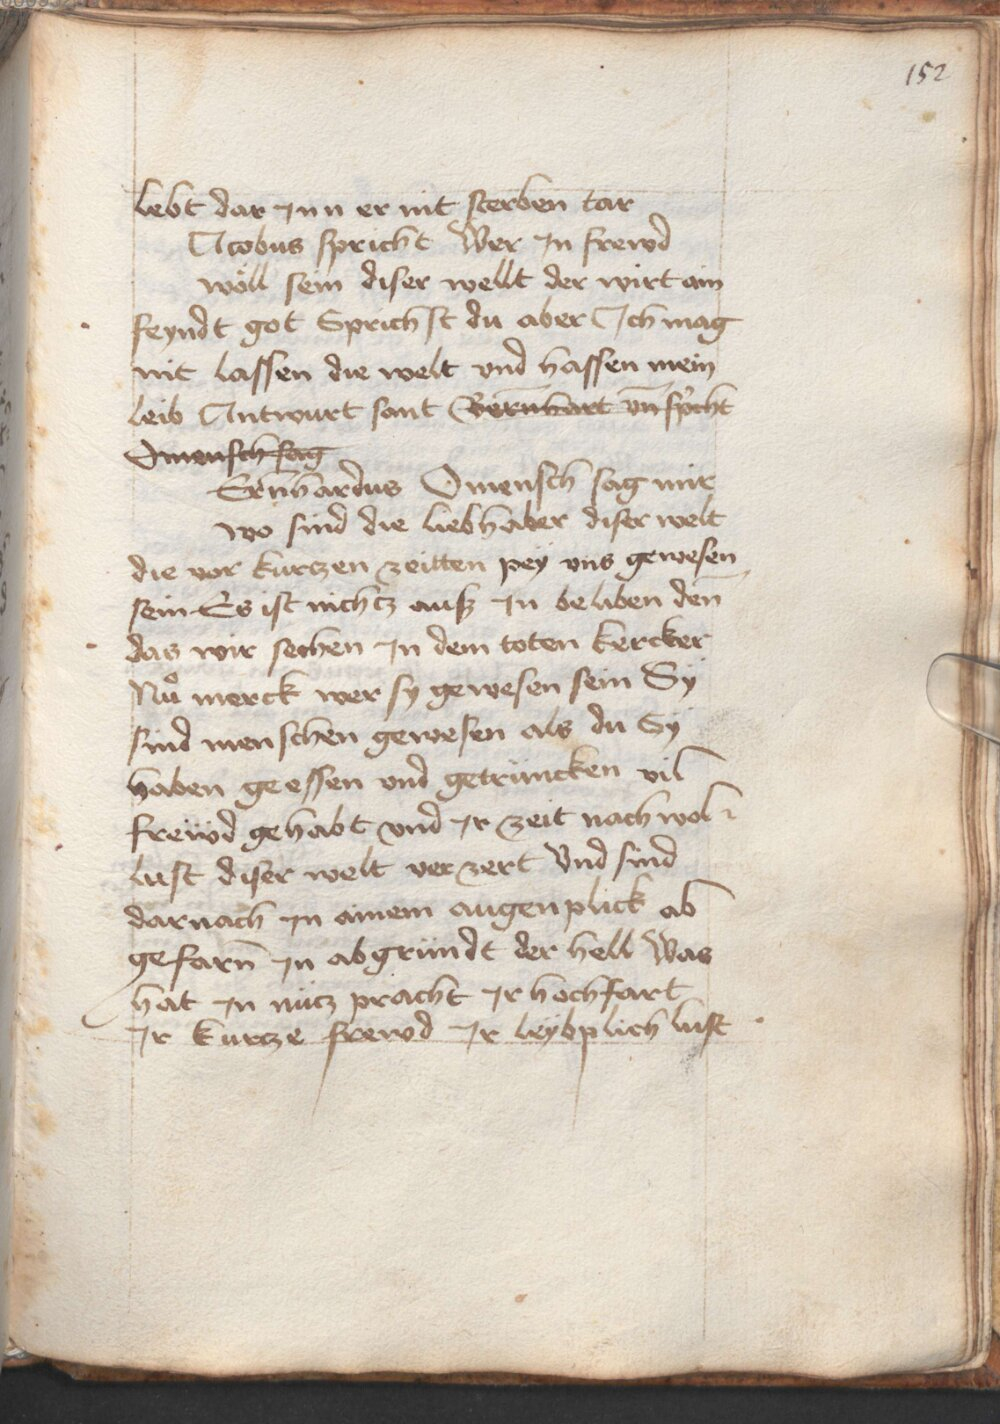 152
lebt dar Jnn er nit sterben tar
Acobus spricht Wer Jn frewd
wöll sein diser wellt der wirt ain
feyndt got Sprichst du aber Jch mag
nit lassen die welt vnd hassen mein
leib Antwurt sant Bernhart vn̄ sp̄cht
O mensch sag
Ernhardus O mensch sag mir
wo sind die liebhaber diser welt
die vor kurtzen zeitten pey vns gewesen
sein Es ist nichtz auß Jn beliben den̄
das wir sechen Jn dem toten kercker
Nů merck wer sy gewesen sein Sy
sind menschen gewesen als du Sy
haben geessen vnd getrüncken vil
frewd gehabt vnd Jr zeit nach wol
lust diser welt verzert Vnd sind
darnach Jn ainem augenplick ab
gefarn̄ Jn abgründt der hell Was
hat Jn nücz pracht Jr hochfart
Jr kurcze frewd Jr leyblich lust